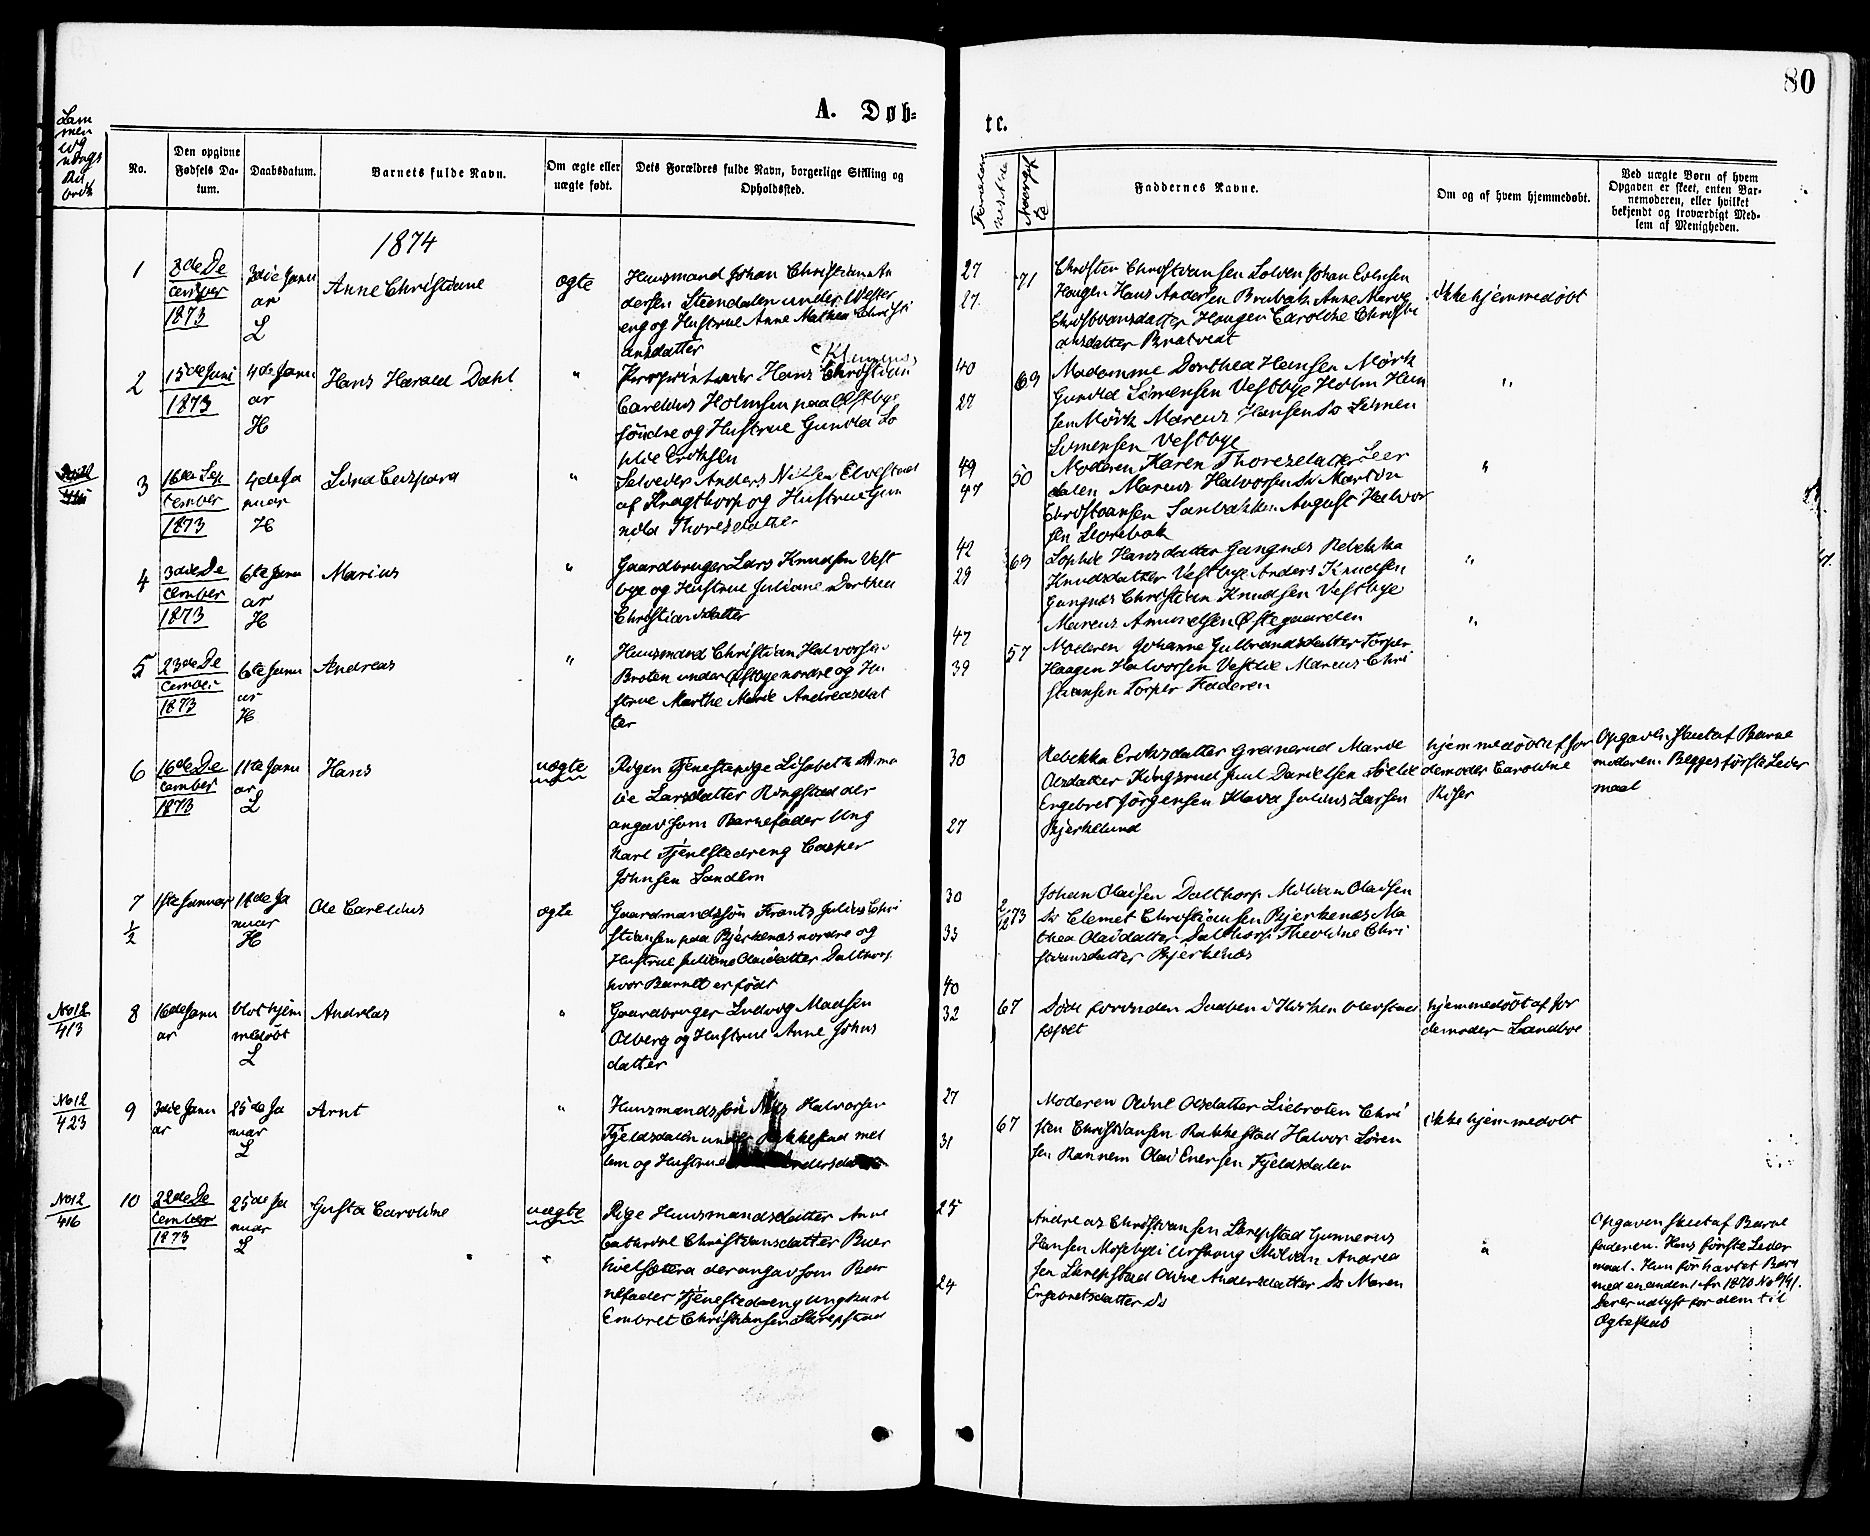 80
A. Døb-
te.
No.
Den opgivne
Fødsels Da-
tum.
Daabsdatum.
Barnets fulde Navn.
Om ægte eller
uægte født.
Dets Forældres fulde Navn, borgerlige Stilling og
Opholdssted.
Faddernes Navne.
Om og af hvem hjemmedøbt.
Ved uægte Børn af hvem
Opgaven er skeet, enten Bar-
nemoderen, eller hvilket
bekjendt og troværdigt Med-
lem af Menigheden.
1874
1
3de De
cember
1873
3die Janu
ar
L
Anne Christiane
ægte
Huusmand Johan Christian An
dersen Steendalen under Vester
eng og Hustrue Anne Mathea Christi
ansdatter
27
27
71
Christen Christiansen Johan Evensen
Haugen Hans Andersen Brubak Anne Marie
Christiansdatter Haugen Caroline Christi
ansdatter Bratvedt
ikke hjemmedøbt
2
15de Juni
1873
4de Janu
ar
H
Hans Harald Dahl
"
Proprietair Hans Christian
Carelius Holmsen paa Østbye
søndre og Hustrue Gunda So
phie Eriksen
40
27
69
Madamme Dorthea Hansen Mørk
Gunild Simensen Vestbye Holm Han
sen Mørk Marcus Hansen Do Simen
Simensen Vestbye
"
3
16de Sep
tember
1873
4de Ja
nuar
H
"
Selveder Anders Nilsen
af Kragtorp og Hustrue Gun
nild Thoresdatter
49
47
50
Moderen Karen Thoresdatter Leer
dalen Marcus Halvorsen Do Martin
Christiansen Sanbakken August Halvor
sen
"
4
3die De
cember
1873
6te Janu
ar
H
Marius
"
Gaardbruger Lars Knudsen Vest
bye og Hustrue Juliane Dorthea
Christiansdatter
42
29
69
Sophie Hansdatter Gangnæs Rebekka
Knudsdatter Vestbye Anders Knudsen
Gangnæs Christian Knudsen Vestbye
Marcus Amundsen Østegaarden
"
5
23de De
cember
1873
6te Janu
ar
H
Andreas
"
Huusmand Christian Halvorsen
Broten under Østbye nordre og Hu
strue Marthe Marie Andreasdat
ter
47
39
57
Moderen Johanne Gulbrandsdatter Torper
Haagen Halvorsen Marcus Chri
stiansen Torper Faderen
"
6
16de De
cember
1873
11te Janu
ar
L
Hans
uægte
Pigen Tjenestepige Lisabeth Ama
lie Larsdatter Ringstad der
angav som Barnefader Ung
karl Tjenestedreng Casper
Johnsen Sandem
30
27
Rebekka Eriksdatter Granerud Marie
Olsdatter Kingsrud Juul Danielsen
Engebret Jørgensen Julius Larsen
Bjerkelund
hjemmedøbt af Jor
demoder Caroline
Riser
Opgaven skeet af Barne
moderen. Begges første Leier
maal
7
1/2
1ste Januar
18de Ja
nuar
H
Ole Carelius
ægte
Gaardmandssøn Frants Julius Chri
stiansen paa Bjerkenæs nordre og
Hustrue Juliane Olaisdatter Dalthorp
hvor Barnet er født
30
33
2/12 73
Johan Olausen Dalthorp Milian Olausen
Do Clemet Christiansen Bjerkenæs Ma
thea Olaisdatter Dalthorp Theoline Chri
stiansdatter Bjerkenæs
No 12
413
8
16de Janu
ar
blot hjem
medøbt
L
Andreas
"
Gaardbruger Ludvig Madsen
Olberg og Hustrue Anne Johns
datter
40
32
67
Døde forinden Daaben i Kirken blev stad
fæstet
hjemmedøbt af Jor
demoder Landboe
No 12
423
9
3die Janu
ar
25de Ja
nuar
L
Arnt
"
Huusmandssøn Halvorsen
Fjeldsdalen under Rakkestad mel
lem og Hustrue
27
31
67
Moderen Oline Olsdatter Liebroten Chri
sten Christiansen Rakkestad Halvor Søren
sen Rannem Olai Evensen Fjeldsdalen
ikke hjemmedøbt
No 12
416
10
22de De
cember
1873
25de Ja
nuar
L
Gusta Caroline
uægte
Pige Huusmandsdatter Anne
Cathrine Christiansdatter Buer
hvelsætera der angav som Bar
nefader Tjenestedreng Ungkarl
Embret Christiansen Skrepstad
25
24
Andreas Christiansen Skrepstad Gunnerius
Hansen Mosebye i Urskoug Milian Andrea
sen Skrepstad Oline Andersdatter Do Maren
Engebretsdatter Do
"
Opgaven skeet af Barne
faderen. Hans første Leier
maal. Hun før havt et Barn
med en anden cfr 1870 No
Der er udlyst for dem til
Ægteskab